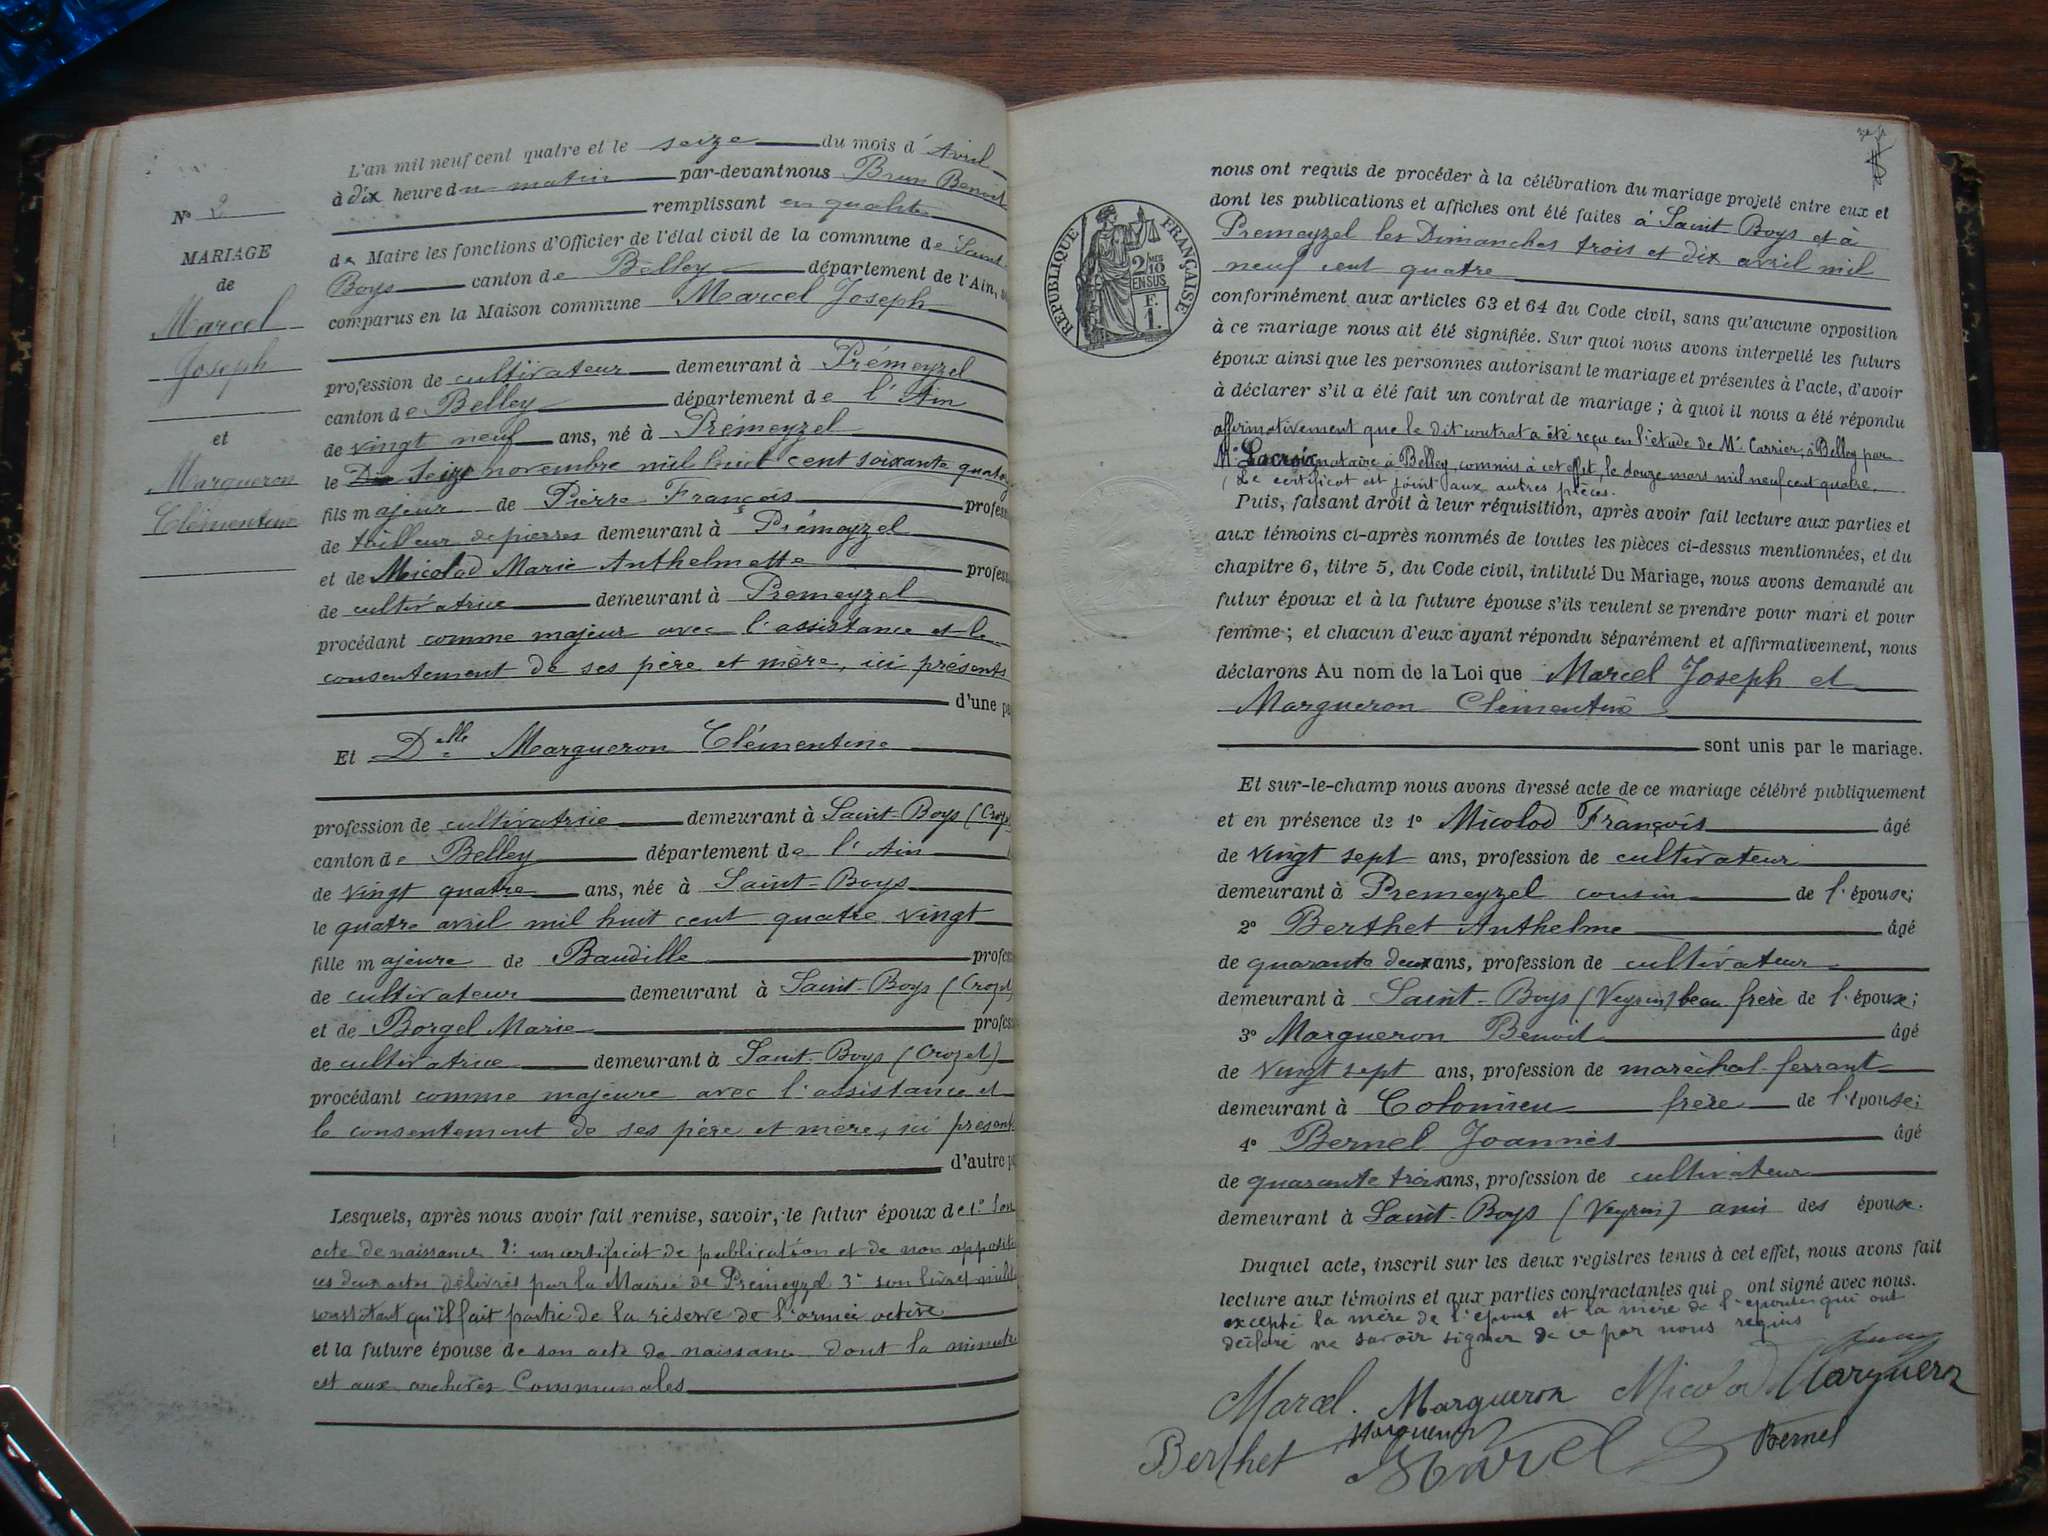 L'an mil neuf cent quatre et le seize du mois d'Avril
à dix heure du matin par-devant nous Brun Benoit
remplissant en qualité
de Maire les fonctions d'Officier de l'état civil de la commune de Saint-
Boys canton de Belley département de l'Ain,
comparus en la Maison commune Marcel Joseph
profession de cultivateur demeurant à Prémeyzel
canton de Belley département de l'Ain
de vingt neuf ans, né à Prémeyzel
le Seize novembre mil huit cent soixante quatorze
fils majeur de Pierre François profess
de tailleur de pierres demeurant à Prémeyzel
et de Micolod Marie Anthelmette profess
de cultivatrice demeurant à Premeyzel
procédant comme majeur avec l'assistance et le
consentement de ses père et mère, ici présents
d'une pa
Et Delle Margueron Clémentine
profession de cultivatrice demeurant à Saint-Boys (Crozet
canton de Belley département de l'Ain
de vingt quatre ans, née à Saint-Boys
le quatre avril mil huit cent quatre vingt
fille majeure de Baudille profess
de cultivateur demeurant à Saint-Boys (Crozet)
et de Borgel Marie profess
de cultivatrice demeurant à Saint-Boys (Crozet)
procédant comme majeure avec l'assistance et
le consentement de ses père et mère, ici présents
d'autre pa
Lesquels, après nous avoir fait remise, savoir, le futur époux de 1° Son
acte de naissance 2: un certificat de publication et de non opposition
ces deux actes délivrés par la Mairie de Prémeyzel 3° son livret milit
constatant qu'il fait partie de la réserve de l'armée active
et la future épouse de son acte de naissance dont la minute
est aux archives Communales
N° 2
MARIAGE
de
Marcel
Joseph
et
Margueron
Clémentine
nous ont requis de procéder à la célébration du mariage projeté entre eux et
dont les publications et affiches ont été faites à Saint-Boys et à
Premeyzel les Dimanches trois et dix avril mil
neuf cent quatre
conformément aux articles 63 et 64 du Code civil, sans qu'aucune opposition
à ce mariage nous ait été signifiée. Sur quoi nous avons interpellé les futurs
époux ainsi que les personnes autorisant le mariage et présentes à l'acte, d'avoir
à déclarer s'il a été fait un contrat de mariage ; à quoi il nous a été répondu
affirmativement que le dit contrat a été reçu en l'étude de Me Carrier, à Belley par
Me Lacroix notaire à Belley, commis à cet effet, le douze mars mil neuf cent quatre.
Le certificat est joint aux autres pièces.
Puis, faisant droit à leur réquisition, après avoir fait lecture aux parties et
aux témoins ci-après nommés de toutes les pièces ci-dessus mentionnées, et du
chapitre 6, titre 5, du Code civil, intitulé Du Mariage, nous avons demandé au
futur époux et à la future épouse s'ils veulent se prendre pour mari et pour
femme ; et chacun d'eux ayant répondu séparément et affirmativement, nous
déclarons Au nom de la Loi que Marcel Joseph et
Margueron Clémentine
sont unis par le mariage.
Et sur-le-champ nous avons dressé acte de ce mariage célébré publiquement
et en présence de 1° Micolod François âgé
de vingt sept ans, profession de cultivateur
demeurant à Premeyzel cousin de l'épouse;
2° Berthet Anthelme âgé
de quarante deux ans, profession de cultivateur
demeurant à Saint-Boys (Veyrin) beau frère de l'époux;
3° Margueron Benoit âgé
de Vingt sept ans, profession de maréchal-ferrant
demeurant à Colomieu frère de l'épouse;
4° Bernel Joannès âgé
de quarante trois ans, profession de cultivateur
demeurant à Saint-Boys (Veyrin) ami des époux.
Duquel acte, inscrit sur les deux registres tenus à cet effet, nous avons fait
lecture aux témoins et aux parties contractantes qui ont signé avec nous.
excepté la mère de l'époux et la mère de l'épouse qui ont
déclaré ne savoir signer de ce par nous requis
Marcel. Margueron Micolod Margueron
Berthet Margueron Marcel Bernel
RÉPUBLIQUE FRANÇAISE
2/10 MES
EN SUS
F.
1.